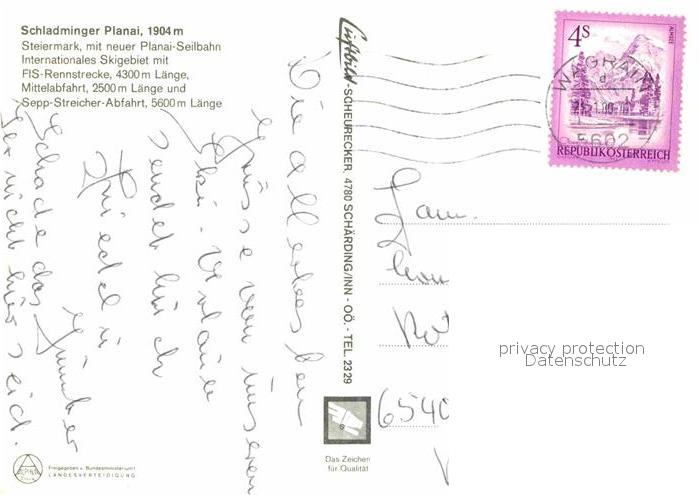 Schladminger Planai, 1904 m
Steiermark, mit neuer Planai-Seilbahn
Internationales Skigebiet mit
FIS-Rennstrecke, 4300 m Länge,
Mittelabfahrt, 2500 m Länge und
Sepp-Streicher-Abfahrt, 5600 m Länge
Die allerbesten
Grüsse von unseren
Ski Urlaub
sendet Euch
Friedl u
Günther
Schade das
Ihr nicht hier seid.
Luftbild-SCHEURECKER, 4780 SCHÄRDING/INN - OÖ. - TEL. 2329
4S
ALMSEE
REPUBLIK ÖSTERREICH
WAGRAIN
5602
Fam.
6540
privacy protection
Datenschutz
Das Zeichen
für Qualität
Freigegeben v. Bundesministerium f.
LANDESVERTEIDIGUNG